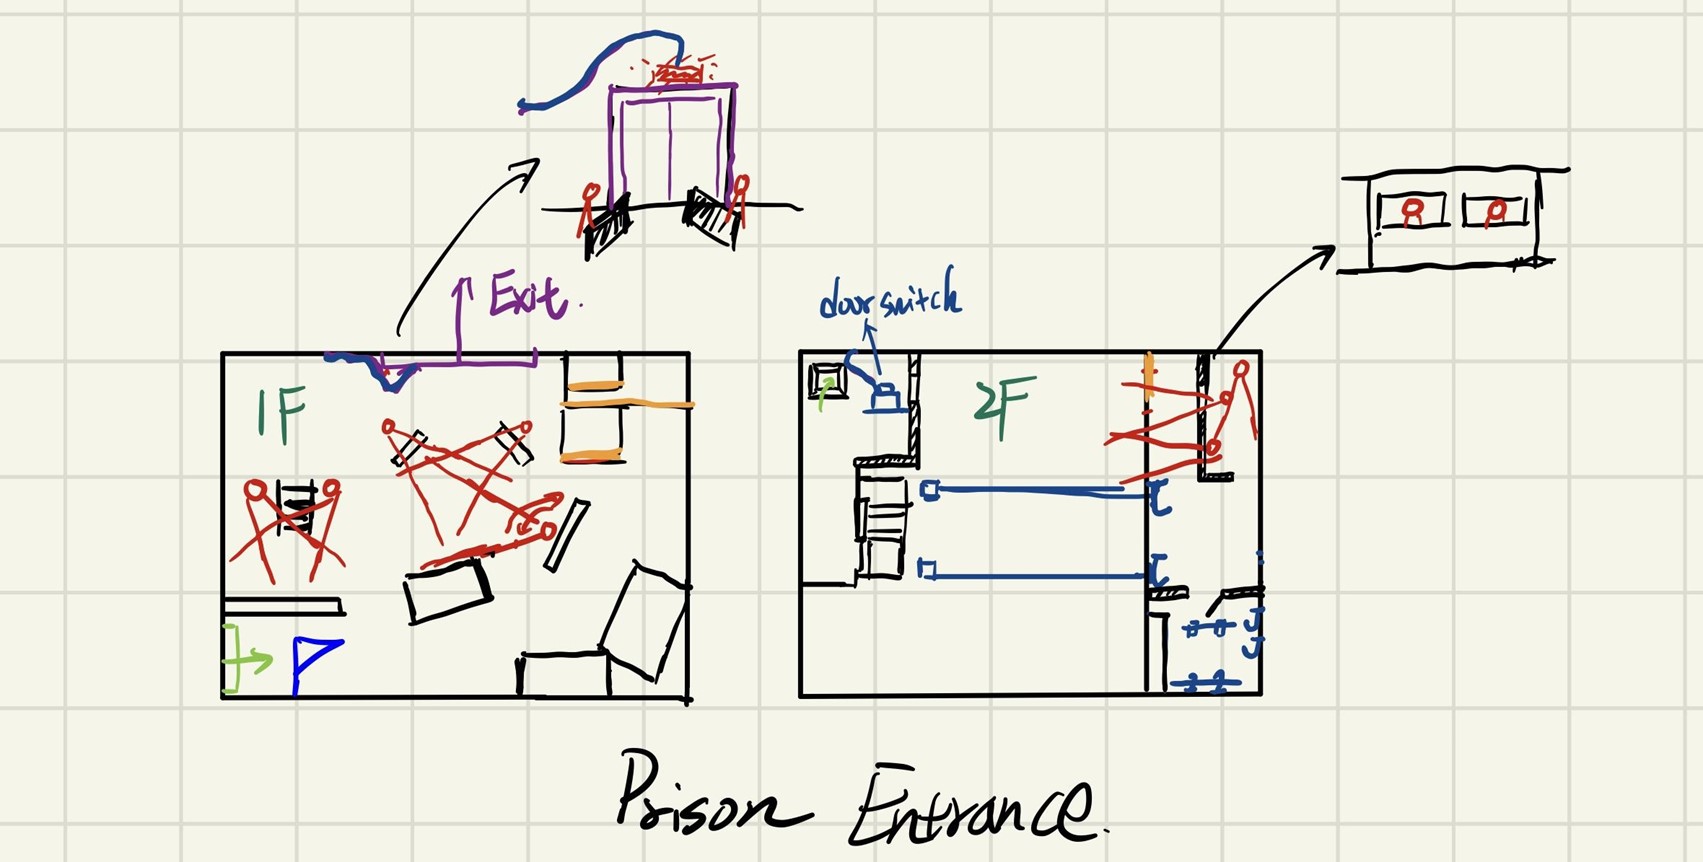 Exit.
door switch
1F
2F
Prison Entrance.